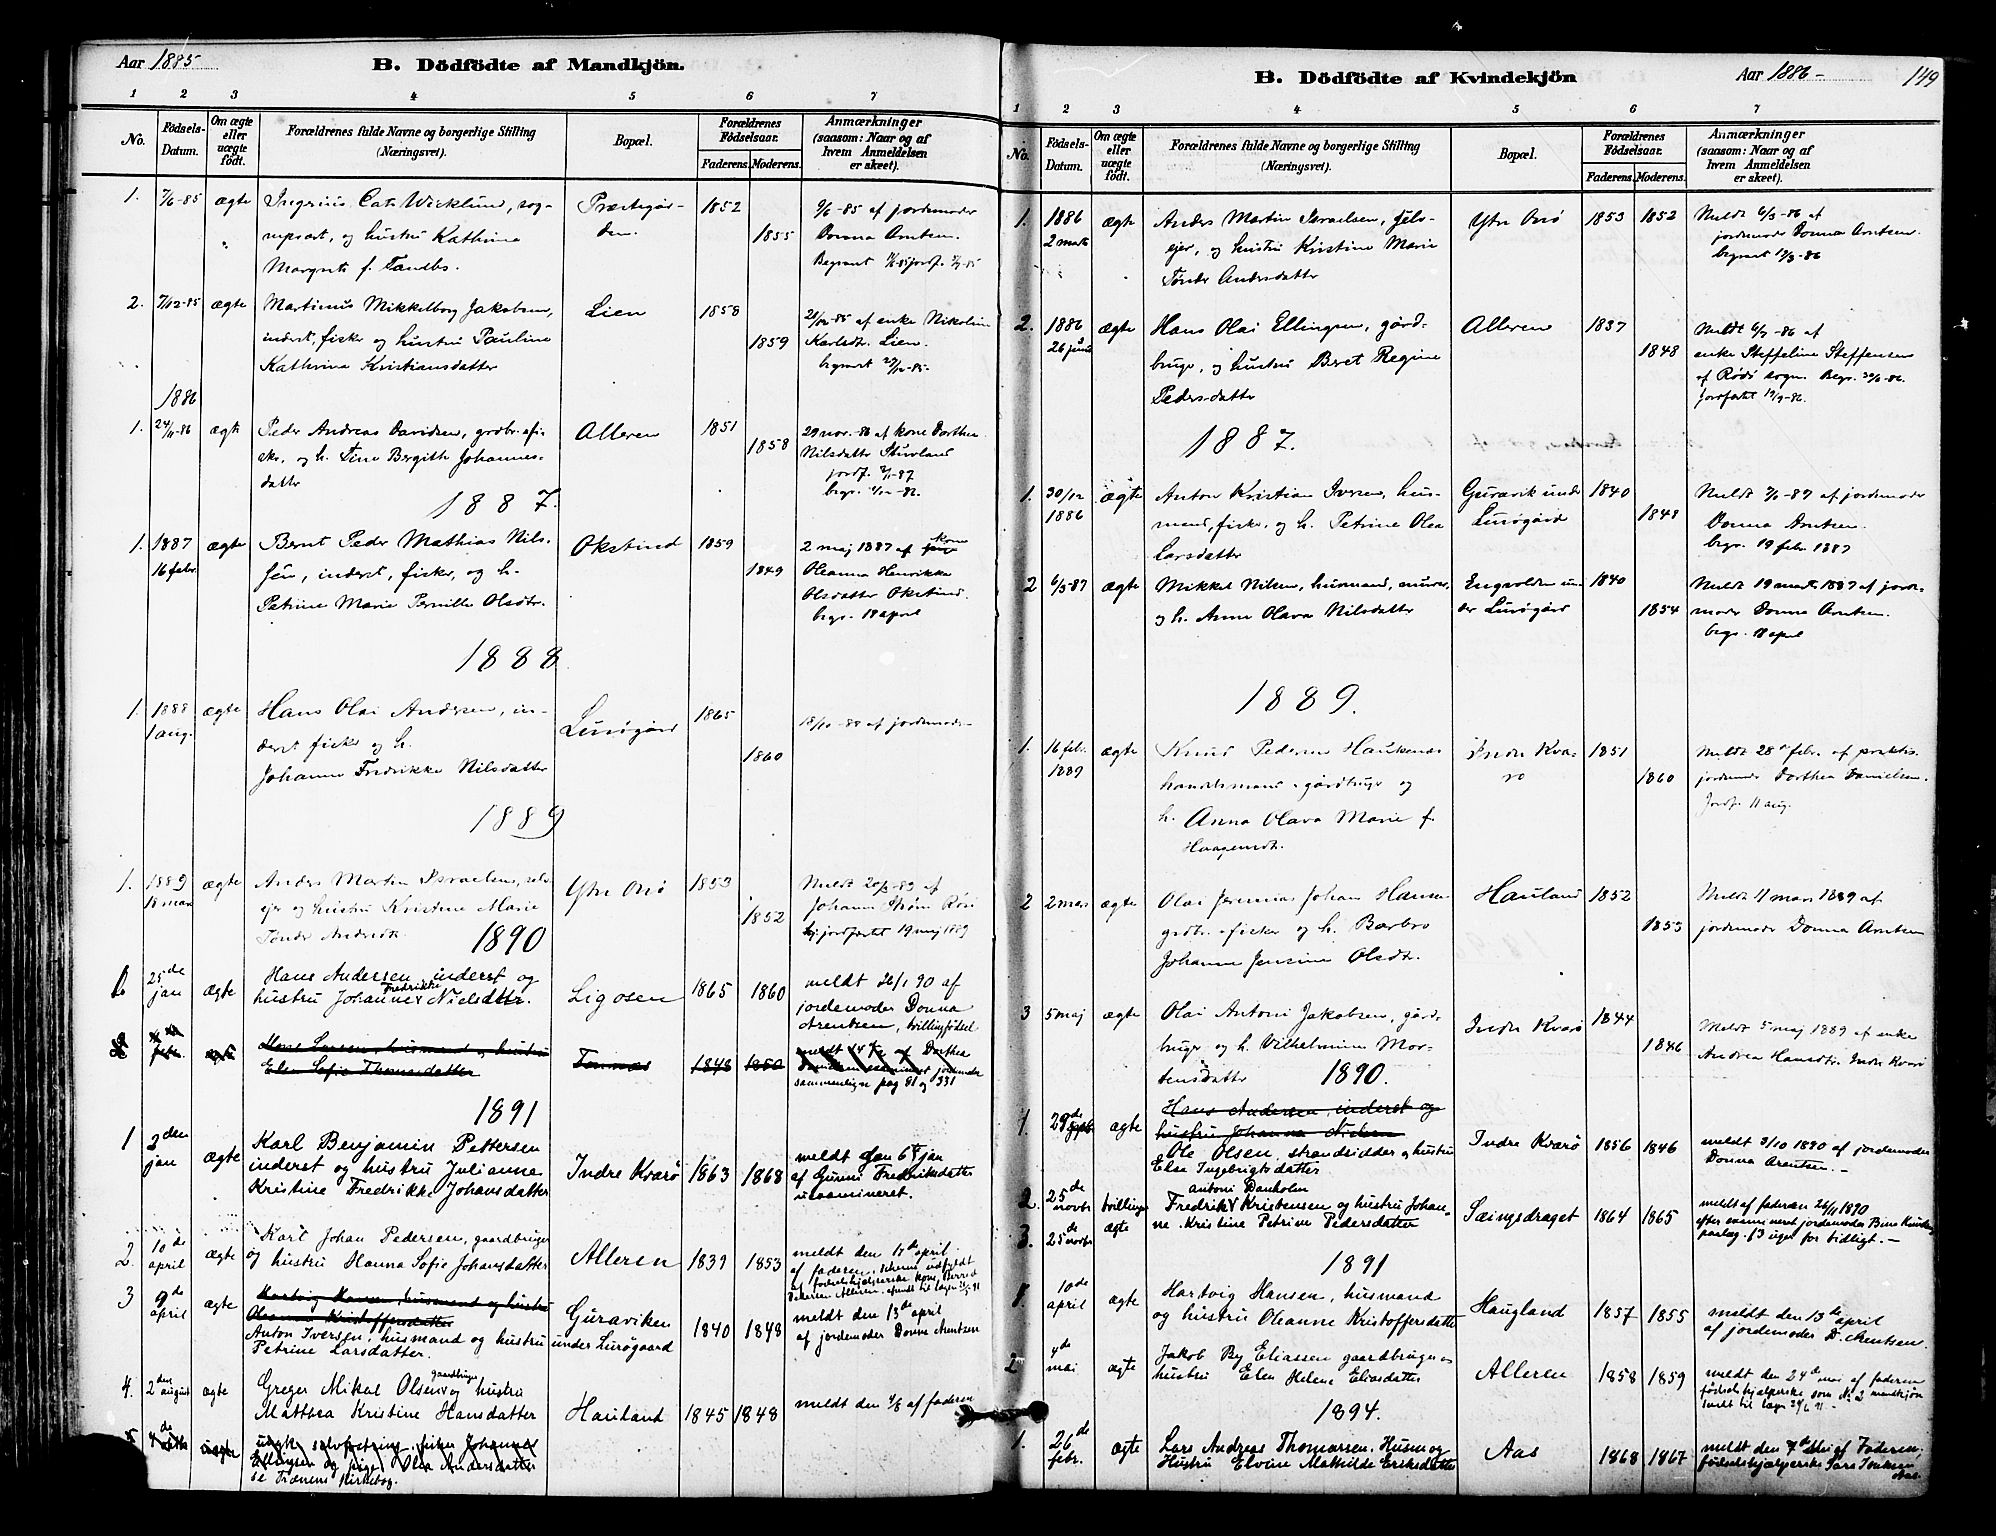 Aar 1885
B. Dödfödte af Mandkjön.
1 2 3 4 5 6 7
No.
Födsels-
Datum.
Om ægte
eller
uægte
født.
Forældrenes fulde Navne og borgerlige Stilling
(Næringsvei).
Bopæl.
Forældrenes
Födselsaar.
Faderens. Moderens.
Anmærkninger
(saasom: Naar og af
hvem Anmeldelsen
er skeet).
1. 7/6-85 ægte
Wicklund, sog-
og hustru Kathrina
Margrete f.
Præstegår-
den.
1852
1855
9/6-85 af jordemoder
Donna Arntsen.
2. 7/12-85 ægte
Martinus Mikkelborg Jakobsen,
inderst, fisker og hustru Pauline
Kathrina Kristiansdatter
Lien
1858
1859
21/12-85 af enke Nikoline
Karlsdtr. Lien.
begravet 27/12-85.
1886
1. 24/11-86 ægte
Peder Andreas Davidsen, grdbr. &fi-
sker, og h. Tina Bergithe Johannes-
datter
Alleren
1851
1858
29 nov. -86 af kone Dorthea
Nilsdatter Stuvland
1887.
1. 1887
16 febr.
ægte
Bernt Peder Mathias Nils-
sen, inderst, fisker, og h.
Petrine Marie Pernille Olsdtr.
Okstind
1859
1849
2 maj 1887 af kone
Oleanna Henrikke
Olsdatter Okstind.
begr. 18 april
1888
1. 1888
1 aug.
ægte
Hans Olai Andersen, in-
derst fisker og h.
Johanna Fredrikke Nilsdatter
Lurøgård
1865
1860
18/10-88 af jordemoder
1889
1. 1889
18 mars
ægte
Anders Martin Israelsen, selv-
ejer og hustru Kristine Marie
Tønder Andrsdtr.
Ytre Onø
1853
1852
Meldt 20/3-89 af
Johanna Strøm
jordfæstet 19 maj 1889
1890
1. 25de
jan
ægte
Hans Andersen inderst og
hustru Johanne Fredrikke Nielsdatter.
Ligosen
1865 1860
meldt 26/1 90 af
jordemoder Donna
Arentsen, tvillingfødsel
2
febr.
Mons Larsen, husmand og hustru
Elen Sofie Thomasdatter
Tonnes
1848 1850
meldt 14/2 af Dorthea
sammenligne pag 81 og 331
1891
1 2den
jan
ægte
Karl Benjamin Pettersen
inderst og hustru Julianne
Kristine Fredrikke Johansdatter
Indre Kvarø
1863 1868
meldt den 6te jan
af Gunni Fredriksdatter
uexamineret.
2. 10de
april
ægte
Karl Johan Pedersen, gaardbruger
og hustru Hanna Sofie Johansdatter
Alleren
1839 1853
meldt den 17de april
af faderen, schema udfyldt
3 9de
april
ægte
Hartvig Hansen, husmand og hustru
Oleanne Kristoffersdatter
Anton Iversen, husmand og hustru
Petrine Larsdatter.
Guraviken
under Lurøgaard
1840 1848
meldt den 13de april
af jordemoder Donna Arentzen
4. 2den
august
ægte
gaardbruger
Greger Mikal Olsen og hustru
Mathea Kristine Hansdatter
Hauland
1845 1848
meldt den 4/8 af faderen
5 4de
uægte
ungk. selvfostring, fisker Johannes
Ellingsen og pige Olea Andersdatter
se Trænens kirkebog.
B. Dödfödte af Kvindekjön
Aar 1886- 149
1 2 3 4 5 6 7
No.
Födsels-
Datum.
Om ægte
eller
uægte
födt.
Forældrenes fulde Navne og borgerlige Stilling
(Næringsvei).
Bopæl.
Forældrenes
Födselsaar.
Faderens. Moderens.
Anmærkninger
(saasom: Naar og af
hvem Anmeldelsen
er skeet).
1. 1886
2 marts
ægte
Anders Martin Israelsen, selv-
ejer, og hustru Kristine Marie
Tønder Andersdatter
Ytre Onø
1853 1852
Meldt 6/3-86 af
jordemoder Donna Arntsen.
begravet 17/3-86
2. 1886
26 juni
ægte
Hans Olai Ellingsen, gård-
bruger, og hustru Beret Regine
Pedersdatter
Alleren
1837
1848
enke Steffeline Steffensen
af Rødø sogn.
1887.
1. 30/12
1886
ægte
Anton Kristian Iversen, hus-
mand, fisker, og h. Petrine Olea
Larsdatter
Guravik under
Lurøgård
1840
1848
Meldt 7/1-87 af jordemoder
Donna Arntsen.
begr. 19 febr. 1887
2 6/3-87 ægte
Mikkel Nilsen, husmand, murer,
og h. Anne Olava Nilsdatter
Engvolden un-
der Lurøgård
1840
1854
Meldt 19 marts 1887 af jorde-
moder Donna Arntsen.
begr. 18 april
1889.
1. 16 febr.
1889
ægte
Knud Pedersen Hauknæs
handelsmand & gårdbruger og
h. Anna Olava Marie f.
Indre Kva-
rø
1851
1860
Meldt 28de febr. af praktis.
jordemoder Dorthea Danielsen.
Jordf. 11 aug.
2 2 mars ægte
Olai Jeremias Johan Hansen
grdbr. & fisker og h. Barbro
Johanna Jensine Olsdtr.
Hauland
1852
1853
Meldt 11 mars 1889 af
jordemoder Donna Arntsen
3 5 maj ægte
Olai Antoni Jakobsen, gård-
bruger og h. Vilhelmina Mor-
tensdatter
Indre Kvarø
1844
1846
Meldt 5 maj 1889 af enke
Andrea Hansdtr. Indre Kvarø
1890.
1 29de
sept.
ægte
Hans Andersen, inderst og
hustru Johanna Nielsen
Ole Olsen, strandsidder og hustru
Elsa Ingebrigtsdatter
Indre Kvarø
1856 1846
meldt 3/10 1890 af jordemoder
Donna Arentsen.-
2. 25de
novbr
3. 25de novbr
tvillinger
ægte
Antoni Danholm
Fredrik Kristensen og hustru Johan-
ne Kristine Petrine Pedersdatter
Seingsdraget
1864 1865
meldt af faderen 26/11 1890
1891
1. 10de
april
ægte
Hartvig Hansen, husmand
og hustru Oleanne Kristoffersdatter
Haugland
1857 1855
meldt den 13de april
af jordemoder D. Arentsen.
2 4de
mai
ægte
Jakob By Eliassen gaardbruger og
hustru Elen Helene Eliasdatter
Alleren
1858 1859
meldt den 24de mai af faderen
fødselshjælperske som No 2 mandkjøn
1894.
1. 26de
febr.
ægte
Lars Andreas Thomassen, Husm. og
Hustru Elvine Mathilde Eriksdatter
Aas
1868 1867
meldt den 7de
af Faderen,
fødselshjælperske
Aas.